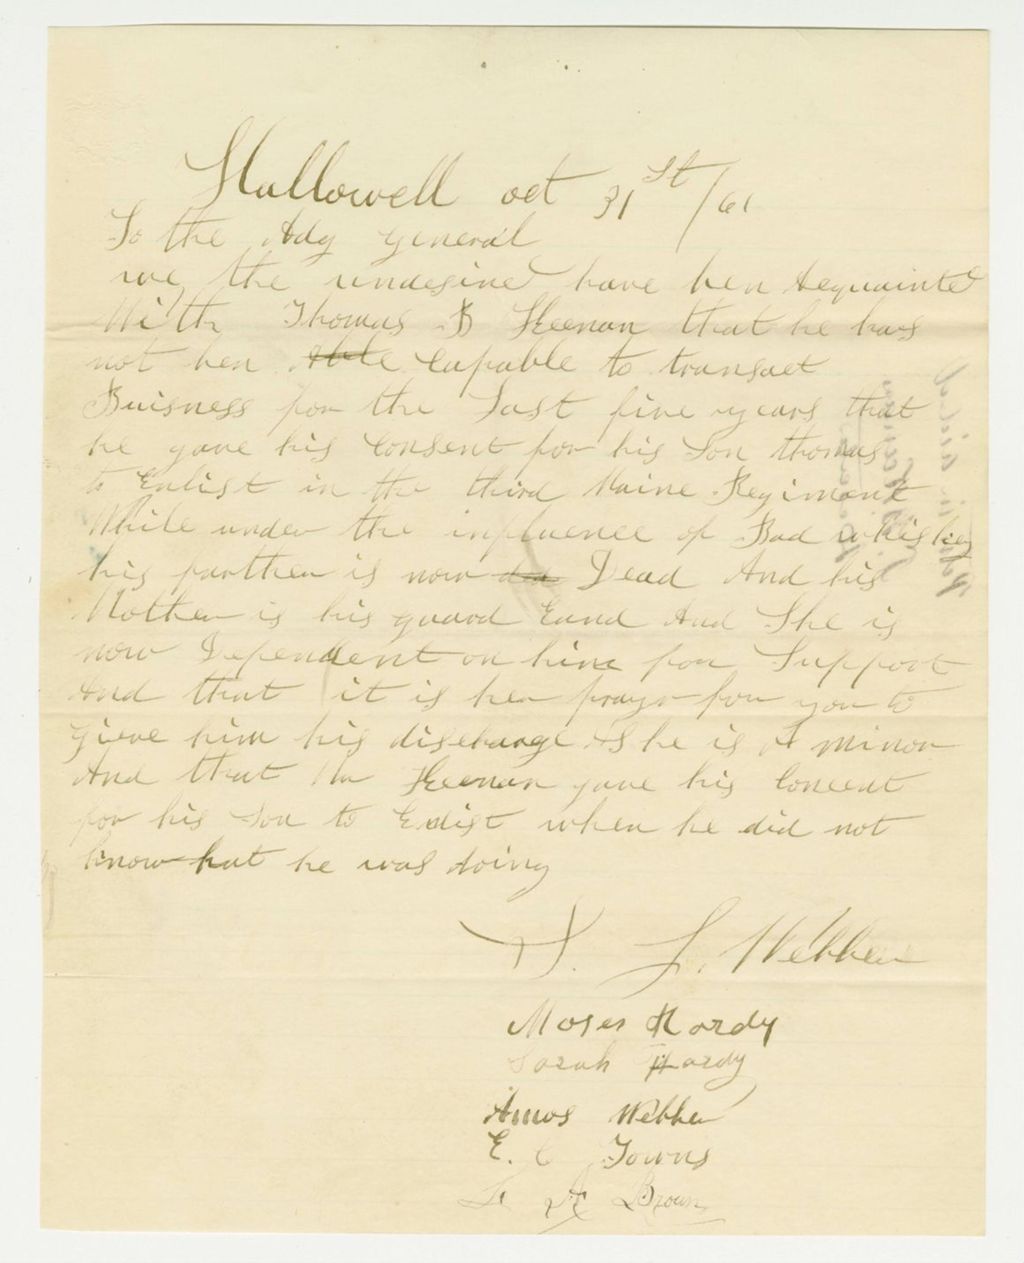 Hallowell oct 31st/61
To the Adg general
we the undesined have ben Acquainted
With Thomas B Keenan that he has
not ben Able Capable to transact
Buisness for the Last five years that
he gave his Consent for his Son thomas
to Enlist in the third Maine Regiment
While under the influence of Bad whiskey
his farther is now Dead And his
Mother is his guard Eand And She is
now Dependent on him for Support
And that it is her prayr for you to
gieve him his discharge He is A minor
And that Mr Keenan gave his Concent
for his Son to Enlist when he did not
know hut he was doing
L. Webber
Moses Hardy
Sarah Hardy
Amos Webber
E. C Towns
A Brown